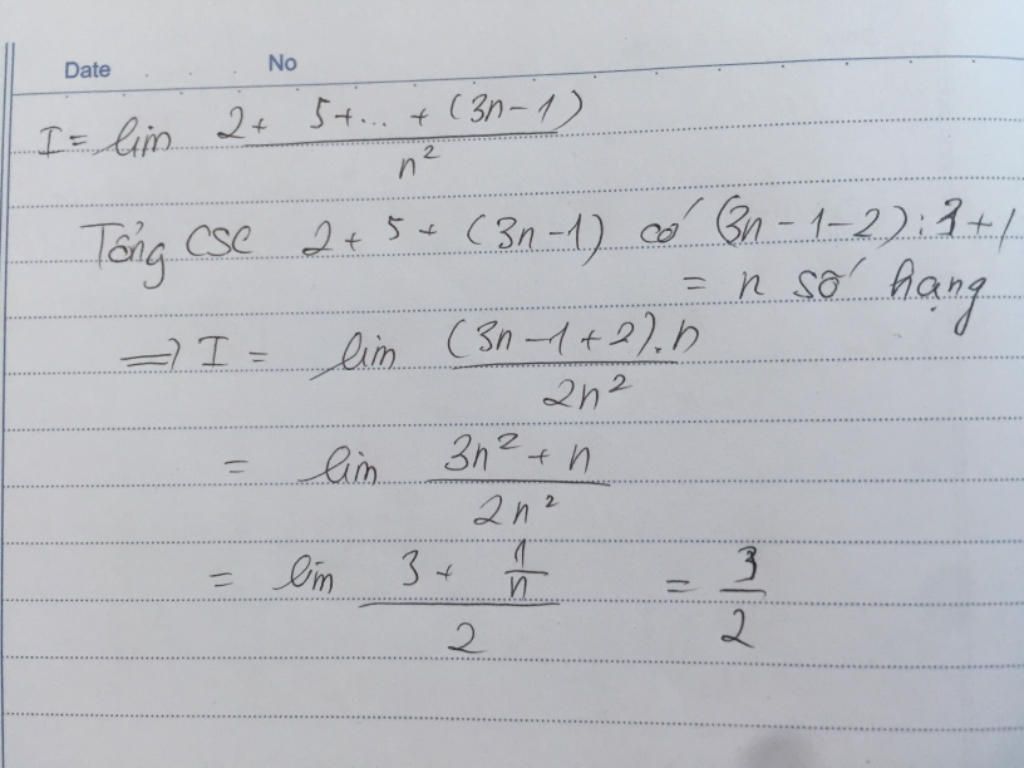 Date No
I = lim (2 + 5 + ... + (3n - 1)) / n²
Tổng CSC 2 + 5 + (3n - 1) có (3n - 1 - 2) : 3 + 1
= n số hạng
=> I = lim ((3n - 1 + 2).n) / 2n²
= lim (3n² + n) / 2n²
= lim (3 + 1/n) / 2 = 3/2